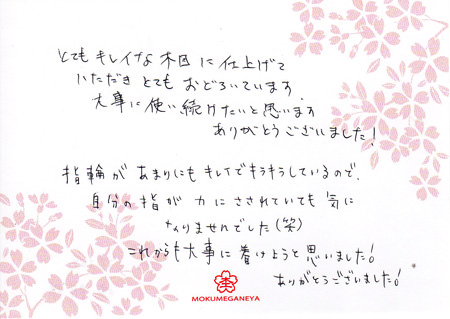 とてもキレイな木目に仕上げて
いただきとてもおどろいています。
大事に使い続けたいと思います
ありがとうございました!
指輪があまりにもキレイでキラキラしているので、
自分の指が力にさされていても気に
なりませんでした(笑)
これからも大事に着けようと思いました!
ありがとうございました!
MOKUMEGANEYA